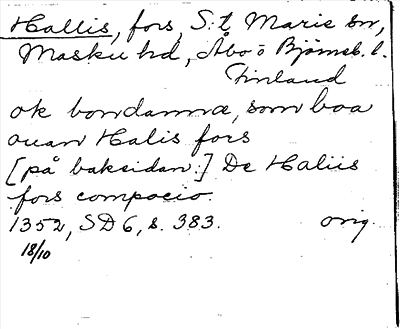 Hallis, fors, S:t Marie sn,
Masku hd, Åbo o Björneb. l.
Finland
ok bondanna, som boa
ouan Halis fors
[på baksidan:] De Haliis
fors compocio.
1352, SD6, s. 383. orig.
18/10